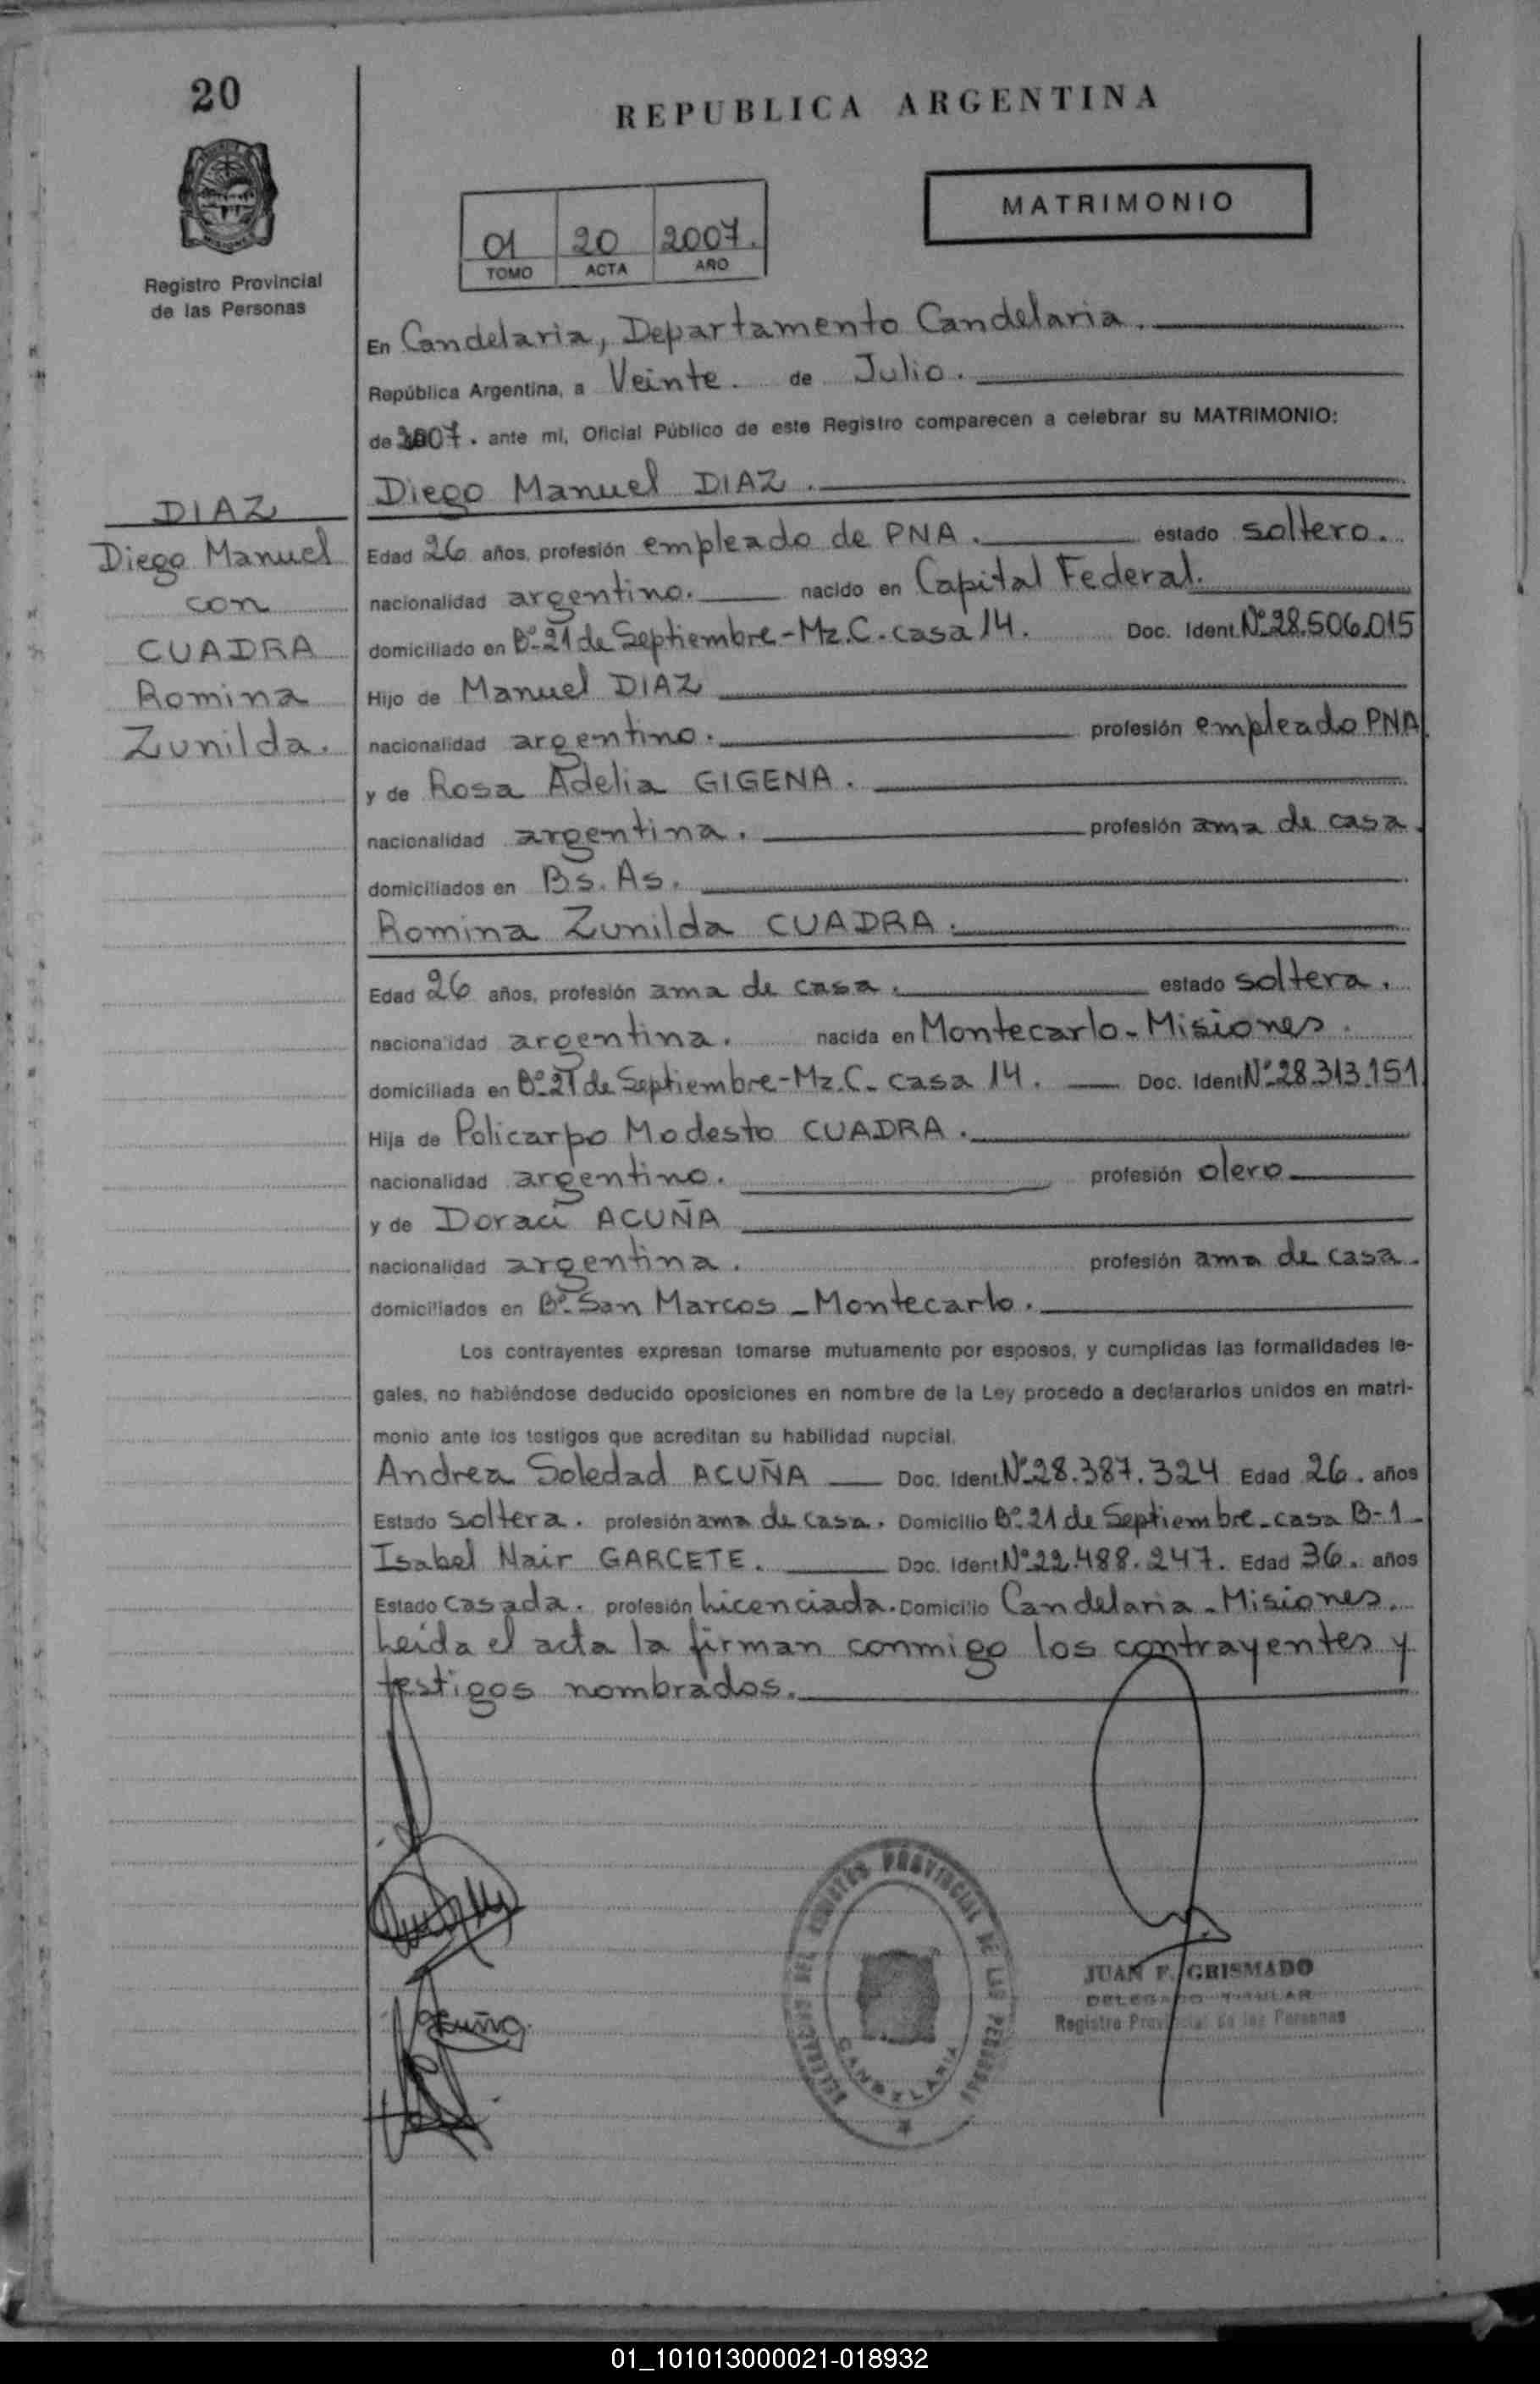 20
REPUBLICA ARGENTINA
MATRIMONIO
01 20 2007.
TOMO ACTA AÑO
Registro Provincial
de las Personas
En Candelaria, Departamento Candelaria.
República Argentina, a Veinte. de Julio.
de 2007. ante mi, Oficial Público de este Registro comparecen a celebrar su MATRIMONIO:
DIAZ
Diego Manuel
con
CUADRA
Romina
Zunilda.
Diego Manuel DIAZ.
Edad 26 años, profesión empleado de PNA. estado soltero.
nacionalidad argentino. nacido en Capital Federal.
domiciliado en Bº-21 de Septiembre-Mz.C-casa 14. Doc. Ident. Nº28.506.015
Hijo de Manuel DIAZ
nacionalidad argentino. profesión empleado PNA.
y de Rosa Adelia GIGENA.
nacionalidad argentina. profesión ama de casa.
domiciliados en Bs. As.
Romina Zunilda CUADRA.
Edad 26 años, profesión ama de casa. estado soltera.
nacionalidad argentina. nacida en Montecarlo-Misiones.
domiciliada en Bº-21 de Septiembre-Mz.C-casa 14. Doc. Ident Nº-28.313.151.
Hija de Policarpo Modesto CUADRA.
nacionalidad argentino. profesión olero
y de Doraci ACUÑA
nacionalidad argentina. profesión ama de casa.
domiciliados en Bº-San Marcos-Montecarlo.
Los contrayentes expresan tomarse mutuamente por esposos, y cumplidas las formalidades le-
gales, no habiéndose deducido oposiciones en nombre de la Ley procedo a declararlos unidos en matri-
monio ante los testigos que acreditan su habilidad nupcial.
Andrea Soledad ACUÑA Doc. Ident. Nº-28.387.324 Edad 26. años
Estado soltera. profesión ama de casa. Domicilio Bº-21 de Septiembre-casa B-1-
Isabel Nair GARCETE. Doc. Ident Nº22.488.247. Edad 36. años
Estado casada. profesión Licenciada. Domicilio Candelaria-Misiones.
Leida el acta la firman conmigo los contrayentes y
testigos nombrados.
Acuña.
DELEGACION DEL REGISTRO PROVINCIAL DE LAS PERSONAS
CANDELARIA
JUAN F. GRISMADO
DELEGADO TITULAR
Registro Provincial de las Personas
01_101013000021-018932